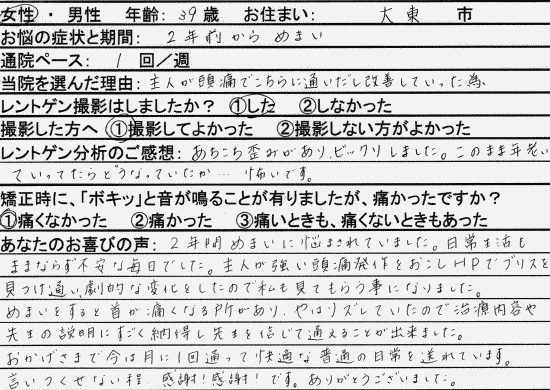 女性・男性 年齢:39歳 お住まい: 大東 市
お悩の症状と期間: 2年前から めまい
通院ペース: 1 回/週
当院を選んだ理由:主人が頭痛でこちらに通いだし改善していった為
レントゲン撮影はしましたか? ①した ②しなかった
撮影した方へ ①撮影してよかった ②撮影しない方がよかった
レントゲン分析のご感想:あちこち歪みがあり、ビックリしました。このまま年老い
ていってたらどうなっていたか… 怖いです。
矯正時に、「ボキッ」と音が鳴ることが有りましたが、痛かったですか?
①痛くなかった ②痛かった ③痛いときも、痛くないときもあった
あなたのお喜びの声:2年間めまいに悩まされていました。日常生活も
ままならず不安な毎日でした。主人が強い頭痛発作をおこしHPでブリスを
見つけ通い劇的な変化をしたので私も見てもらう事になりました。
めまいをすると首が痛くなる所があり、やはりズレていたので治療内容や
先生の説明にすごく納得し先生を信じて通えることが出来ました。
おかげさまで今は月に1回通って快適な普通の日常を送れています。
言いつくせない程、感謝!感謝!です。ありがとうございました。